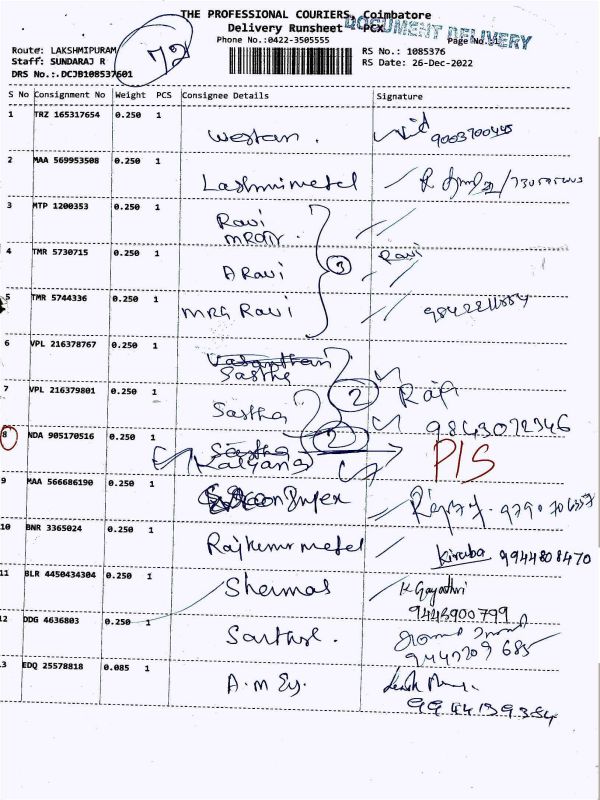 THE PROFESSIONAL COURIERS, Coimbatore
Delivery Runsheet - PCX
DOCUMENT DELIVERY
Phone No.:0422-3505555 Page No.:1
Route: LAKSHMIPURAM
Staff: SUNDARAJ R
DRS No.:.DCJB108537601
72
RS No.: 1085376
RS Date: 26-Dec-2022
S No Consignment No Weight PCS Consignee Details Signature
1 TRZ 165317654 0.250 1 Western.
2 MAA 569953508 0.250 1 Lashmimetel
3 MTP 1200353 0.250 1 Ravi
4 TMR 5730715 0.250 1 A Ravi 3 Ravi
5 TMR 5744336 0.250 1 MRG Ravi
6 VPL 216378767 0.250 1 Vasanthan
Sastha
7 VPL 216379801 0.250 1 Sastha 2 Raja
9843072346
8 NDA 905170516 0.250 1 Sastha 2
Kalyana P/S
9 MAA 566686190 0.250 1
10 BNR 3365024 0.250 1 Rajkumr metel Kiruba 9944808470
11 BLR 4450434304 0.250 1 Shermas K Gayathri
9443900799
12 DDG 4636803 0.250 1
9442209 685
13 EDQ 25578818 0.085 1 A.M Ey.
9944139384